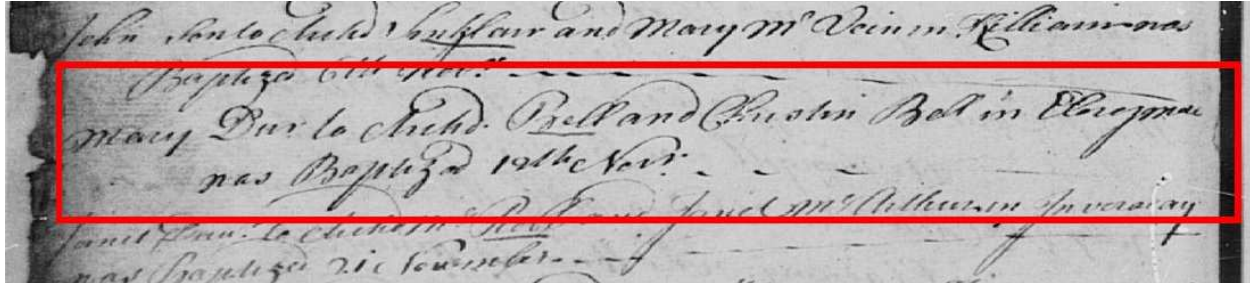 John Son to Archd. Sinklair and Mary Mc Vein in Killian was
Baptized 6th Novr.
Mary Daur. to Archd. Bell and Christin Bell in
was Baptized 19th Novr.
Janet Daur. to Archd. Mc and Janet McArthur in Inveraray
was Baptized 21t November